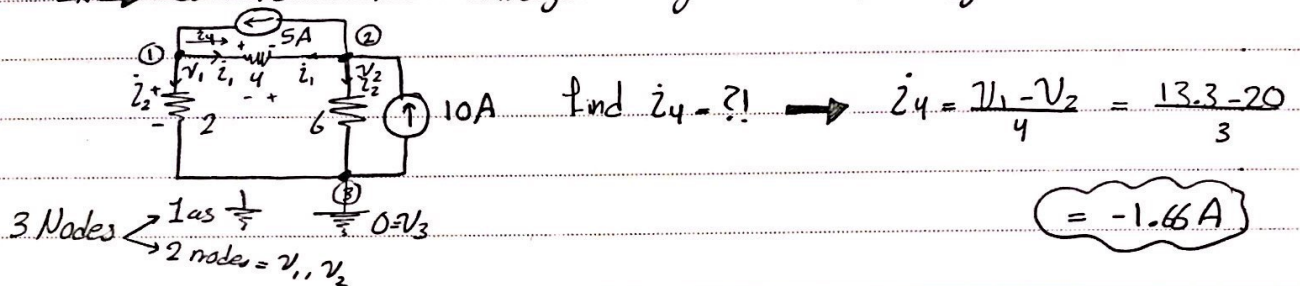 i4 → + - 5A
① ②
v1 i1 4 i1 v2
i2 + - + i2
- 2 6 10A find i4 = ?! → i4 = V1 - V2 / 4 = 13.3 - 20 / 3
③
3 Nodes 1 as 0=V3 = -1.66 A
2 nodes = v1, v2